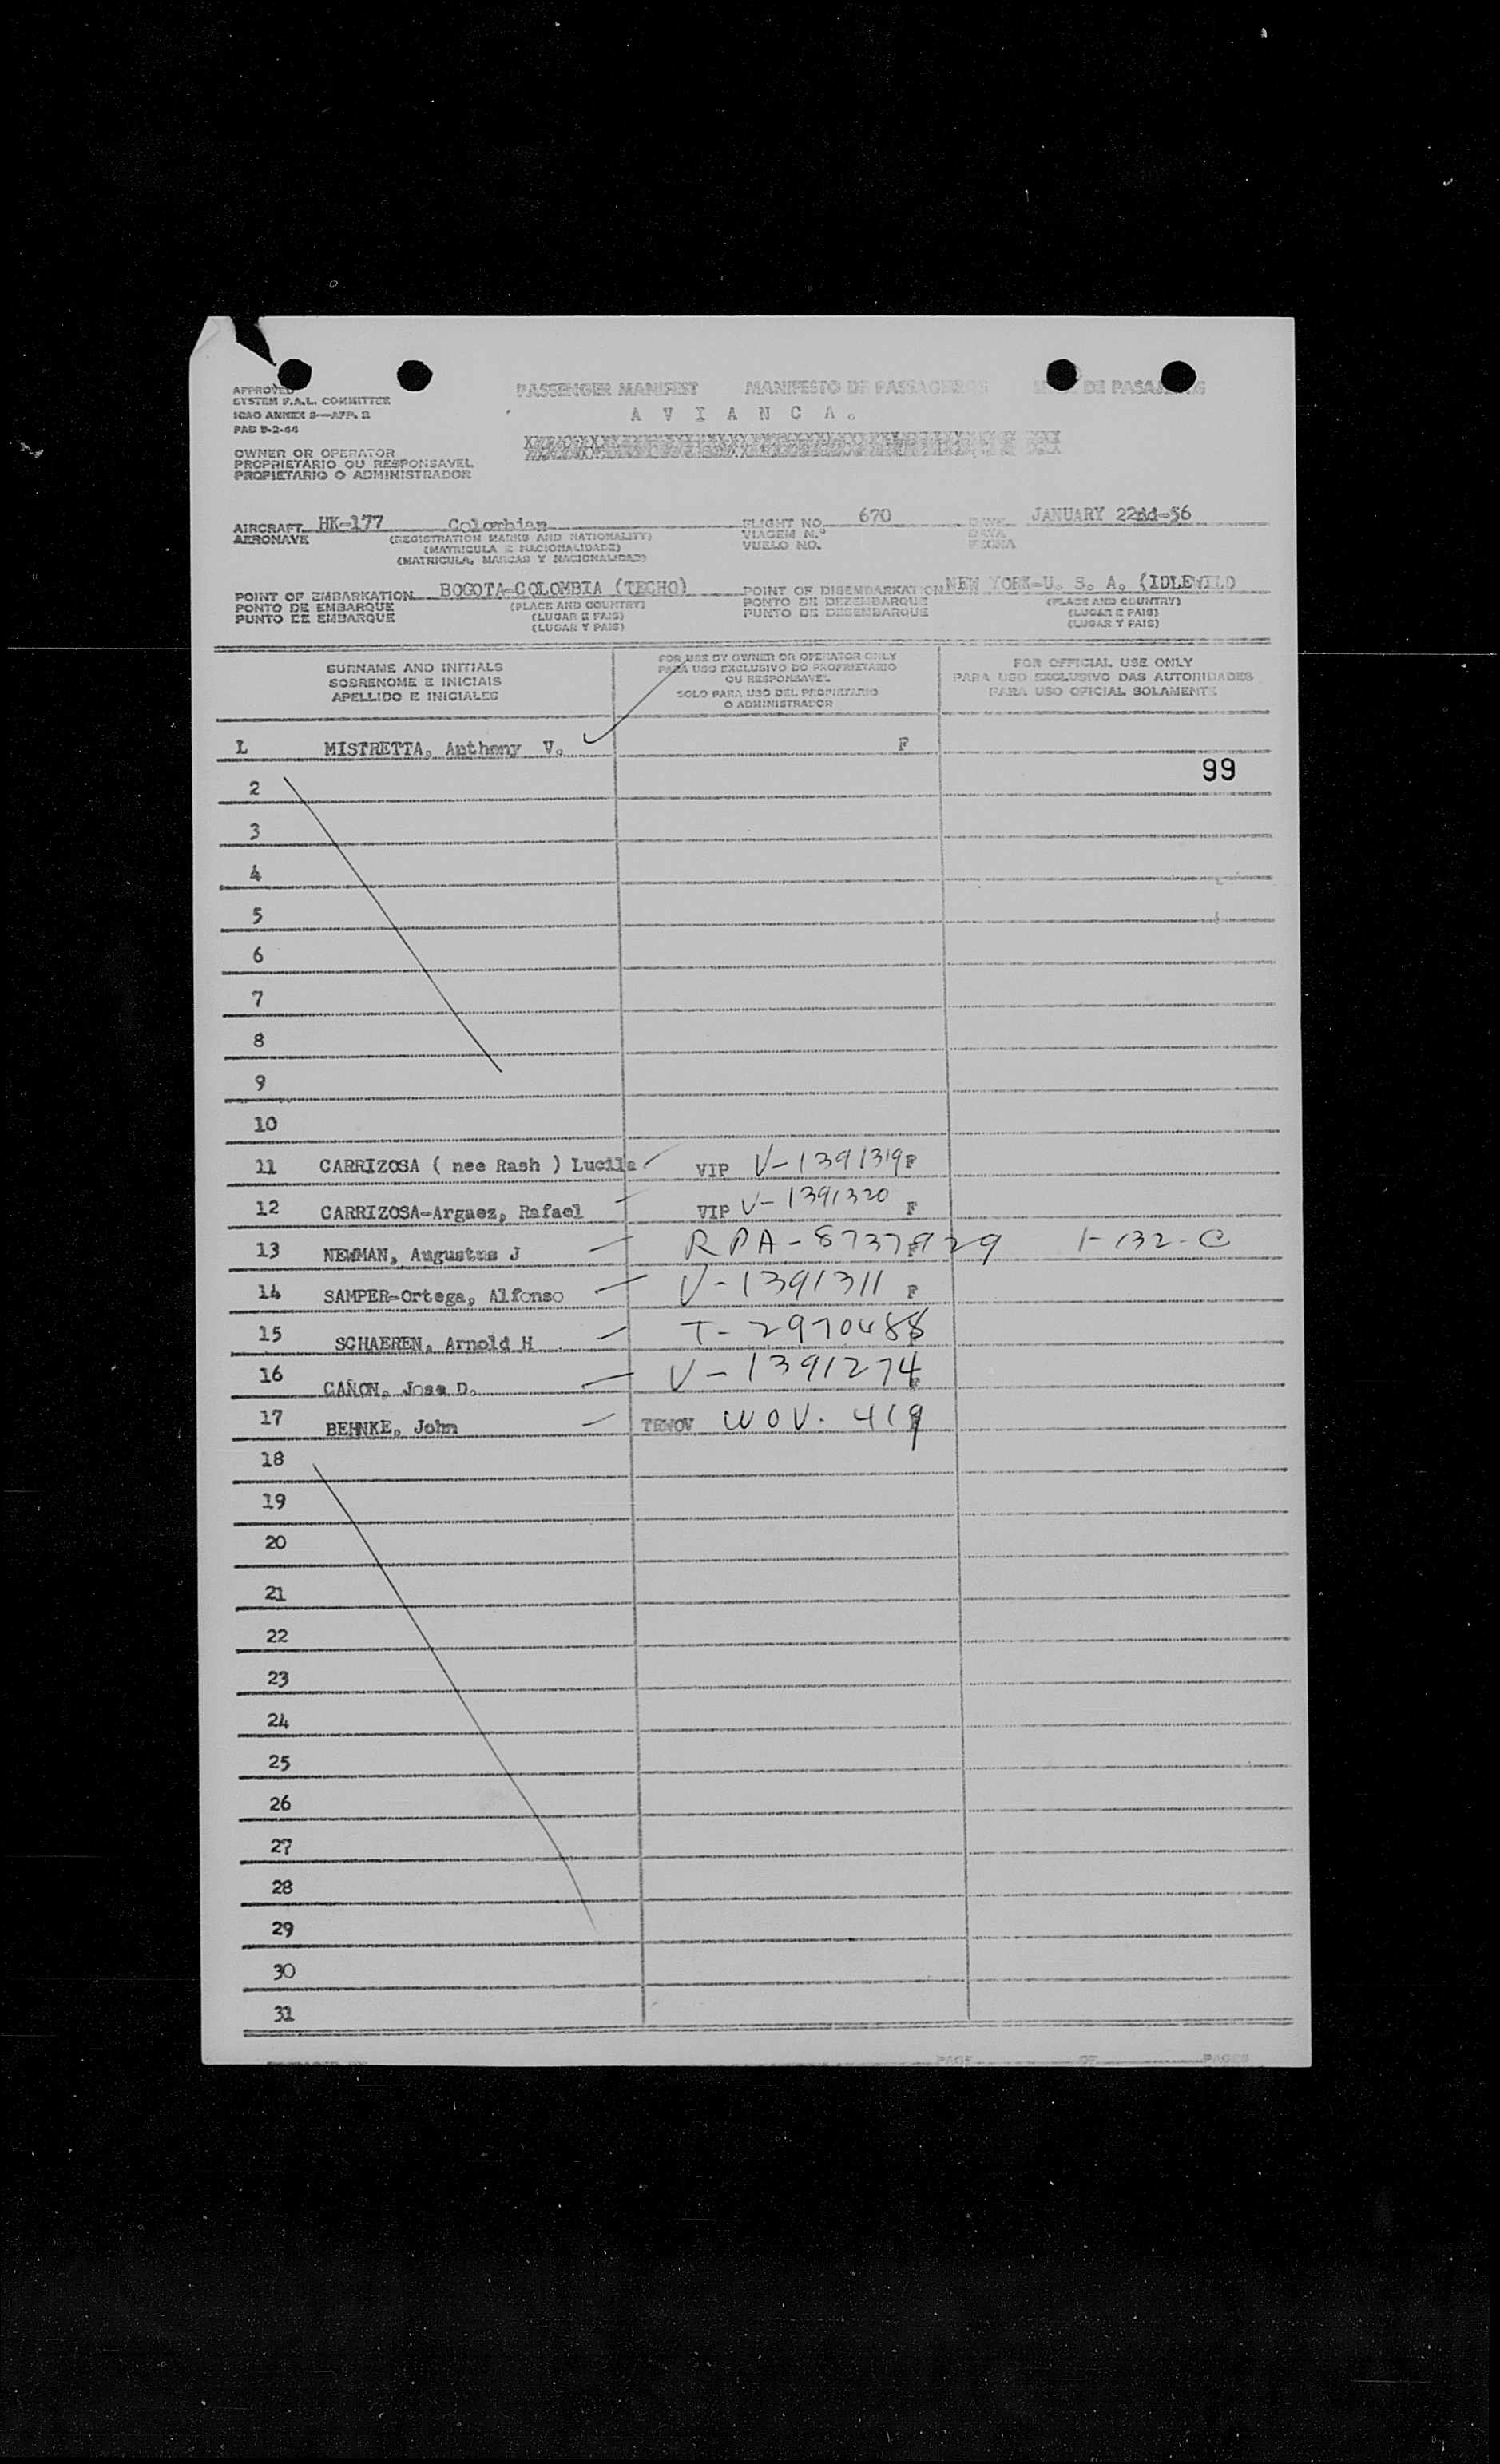 APPROVED
SYSTEM F.A.L. COMMITTEE
ICAO ANNEX 9—APP. 2
PAB 5-2-44
PASSENGER MANIFEST MANIFESTO DE PASSAGEIROS DE PASAJEROS
A V I A N C A.
OWNER OR OPERATOR
PROPRIETARIO OU RESPONSAVEL
PROPIETARIO O ADMINISTRADOR
AIRCRAFT HK-177 Colombian FLIGHT NO. 670 DATE JANUARY 22nd-56
AERONAVE (REGISTRATION MARKS AND NATIONALITY) VIAGEM N.º DATA
(MATRICULA E NACIONALIDADE) VUELO NO. FECHA
(MATRICULA, MARCAS Y NACIONALIDAD)
POINT OF EMBARKATION BOGOTA-COLOMBIA (TECHO) POINT OF DISEMBARKATION NEW YORK-U. S. A. (IDLEWILD
PONTO DE EMBARQUE (PLACE AND COUNTRY) PONTO DE DEZEMBARQUE (PLACE AND COUNTRY)
PUNTO DE EMBARQUE (LUGAR E PAIS) PUNTO DE DESEMBARQUE (LUGAR E PAIS)
(LUGAR Y PAIS) (LUGAR Y PAIS)
SURNAME AND INITIALS
SOBRENOME E INICIAIS
APELLIDO E INICIALES
FOR USE BY OWNER OR OPERATOR ONLY
PARA USO EXCLUSIVO DO PROPRIETARIO
OU RESPONSAVEL
SOLO PARA USO DEL PROPIETARIO
O ADMINISTRADOR
FOR OFFICIAL USE ONLY
PARA USO EXCLUSIVO DAS AUTORIDADES
PARA USO OFICIAL SOLAMENTE
1 MISTRETTA, Anthony V. F
99
2
3
4
5
6
7
8
9
10
11 CARRIZOSA ( nee Rash ) Lucila VIP V-1391319 F
12 CARRIZOSA-Argaez, Rafael VIP V-1391320 F
13 NEWMAN, Augustus J RPA-8737929 F 1-132-C
14 SAMPER-Ortega, Alfonso V-1391311 F
15 SCHAEREN, Arnold H T-2970488
16 CAÑON, Jose D. V-1391274
17 BEHNKE, John TRWOV WOV. 419
18
19
20
21
22
23
24
25
26
27
28
29
30
31
PAGE OF PAGES